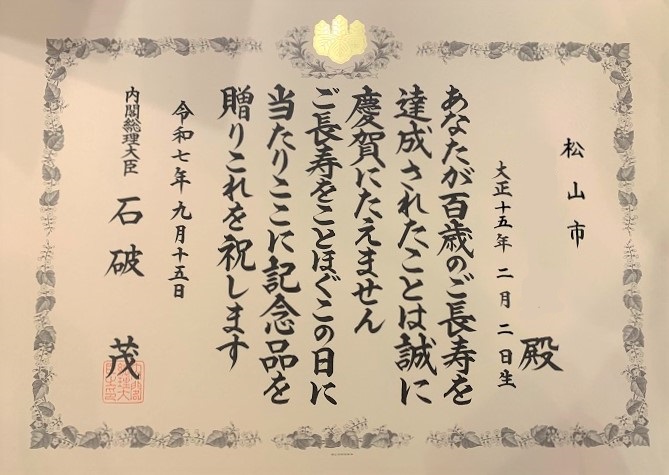 松山市
殿
大正十五年二月二日生
あなたが百歳のご長寿を
達成されたことは誠に
慶賀にたえません
ご長寿をことほぐこの日に
当たりここに記念品を
贈りこれを祝します
令和七年九月十五日
内閣総理大臣 石破 茂